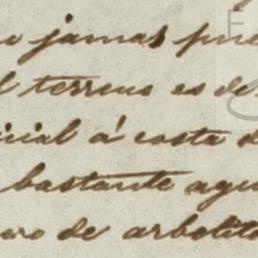 jamas pue
l terreno es de
icial á costa d
bastante agu
uro de arbolito